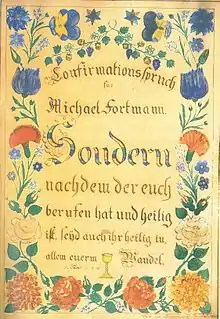 Confirmationsspruch
für
Michael Fortmann.
Sondern
nachdem der euch
berufen hat und heilig
ist, seyd auch ihr heilig in
allem euerm Wandel.